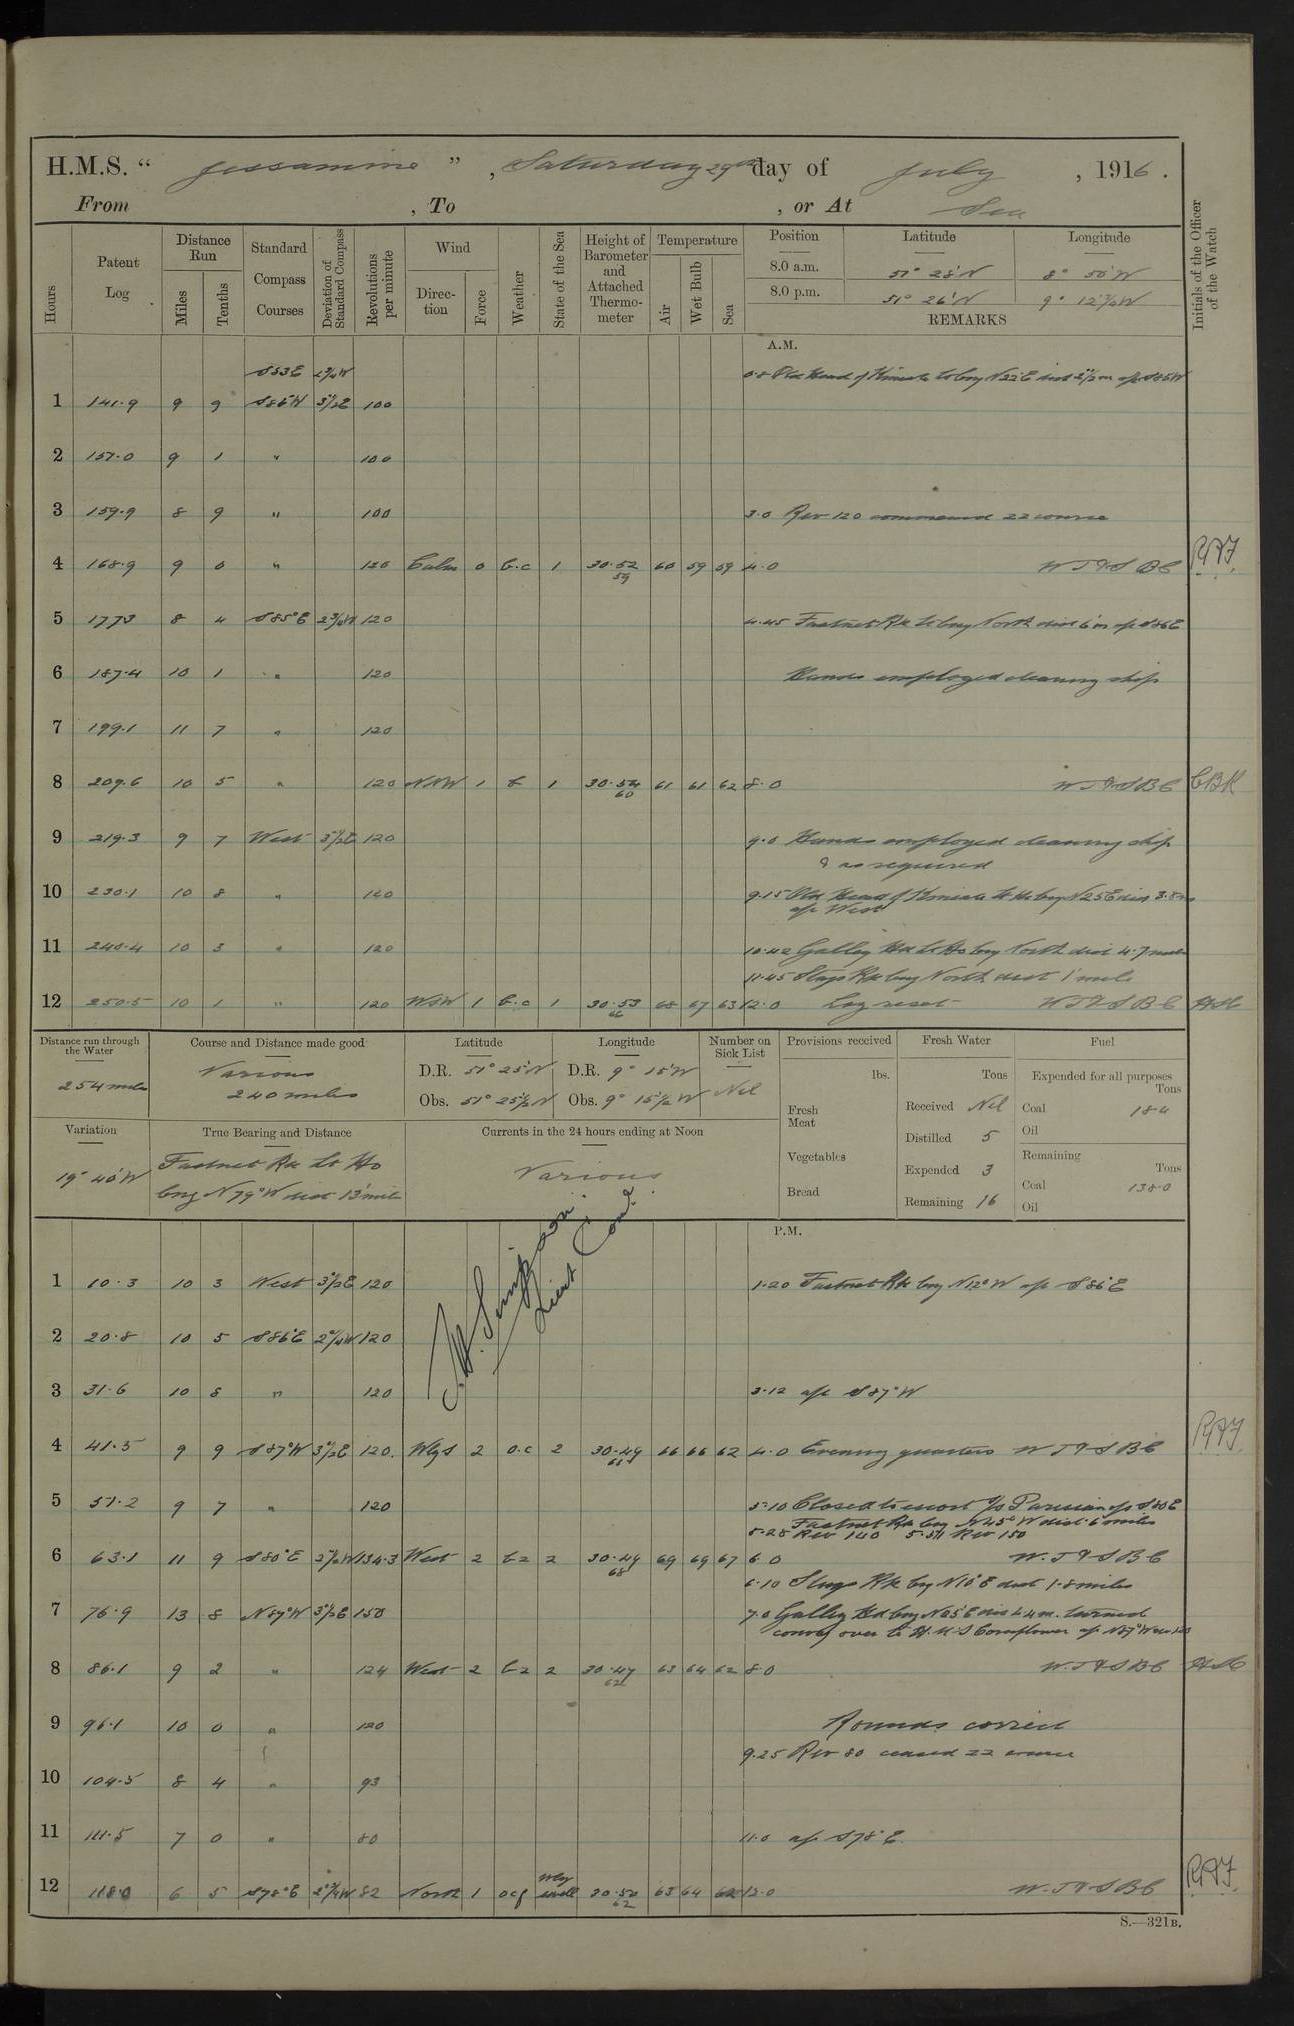 H.M.S. " Jessamine ", Saturday 29th day of July, 1916.
From , To , or At Sea
Hours
Patent Log
Distance Run
Miles
Tenths
Standard Compass Courses
Deviation of Standard Compass
Revolutions per minute
Wind
Direction
Force
Weather
State of the Sea
Height of Barometer and Attached Thermometer
Temperature
Air
Wet Bulb
Sea
Position Latitude Longitude
8.0 a.m. 51° 28' N 8° 50' W
8.0 p.m. 51° 26' N 9° 12 3/4 W
REMARKS
Initials of the Officer of the Watch
A.M.
S83E 2 3/4 W 0.8 Old Head of Kinsale Lt brg N22E dist 2 1/2 m a/c S86W
1 141.9 9 9 S86W 3 1/2 E 100
2 151.0 9 1 " 100
3 159.9 8 9 " 100 3.0 Rev 120 commenced 22 course
4 168.9 9 0 " 120 Calm 0 b.c 1 30.52 59 60 59 59 4.0 W T & S B C RAF
5 177.3 8 4 S85°E 2 3/4 W 120 4.45 Fastnet Rk Lt brg North dist 6 m a/c S86E
6 187.4 10 1 " 120 Hands employed cleaning ship
7 199.1 11 7 " 120
8 209.6 10 5 " 120 NNW 1 b 1 30.54 60 61 61 62 8.0 W T & S B C CBH
9 219.3 9 7 West 3 1/2 E 120 9.0 Hands employed cleaning ship
& as required
10 230.1 10 8 " 120 9.15 Old Head of Kinsale Lt Ho brg N25E dist 3.8 m
a/c West
11 240.4 10 3 " 120 10.42 Galley Hd Lt Ho brg North dist 4.7 miles
11.45 Stags Rk brg North dist 1 mile
12 250.5 10 1 " 120 WSW 1 b.c 1 30.53 66 68 67 63 12.0 Log reset W T & S B C
Distance run through the Water
254 miles
Course and Distance made good
Various
240 miles
Latitude
D.R. 51° 25' N
Obs. 51° 25 1/2 N
Longitude
D.R. 9° 15' W
Obs. 9° 15 1/2 W
Number on Sick List
Nil
Provisions received
lbs.
Fresh Meat
Vegetables
Bread
Fresh Water
Tons
Received Nil
Distilled 5
Expended 3
Remaining 16
Fuel
Expended for all purposes
Tons
Coal 18.4
Oil
Remaining
Tons
Coal 138.0
Oil
Variation
19° 40' W
True Bearing and Distance
Fastnet Rk Lt Ho
brg N79°W dist 13 miles
Currents in the 24 hours ending at Noon
Various
Simpson
Lieut Com.
P.M.
1 10.3 10 3 West 3 1/2 E 120 1.20 Fastnet Rk brg N12°W a/c S86°E
2 20.8 10 5 S86°E 2 3/4 W 120
3 31.6 10 8 " 120 3.12 a/c S87°W
4 41.5 9 9 S87°W 3 1/2 E 120. W by S 2 o.c 2 30.49 68 66 66 62 4.0 Evening quarters W T & S B C RAF
5 51.2 9 7 " 120 5.10 Closed to escort S/S Parisian a/c S80E
Fastnet Rk brg N45°W dist 6 miles
5.28 Rev 140 Rev 150
6 63.1 11 9 S80°E 2 3/4 W 134.3 West 2 b.c 2 30.49 68 69 69 67 6.0 W. T & S B C
6.10 Stags Rk brg N10°E dist 1.8 miles
7 76.9 13 8 N87°W 3 1/2 E 150 7.0 Galley Hd brg N25E dist 4.4 m. turned
convoy over to H.M.S Cornflower a/c N87°W rev 120
8 86.1 9 2 " 124 West 2 b.c 2 30.47 62 63 64 62 8.0 W. T & S B C
9 96.1 10 0 " 120 Rounds correct
9.25 Rev 80 ceased 22 course
10 104.5 8 4 " 93
11 111.5 7 0 " 80 11.0 a/c S78°E.
12 118.0 6 5 S78°E 2 3/4 W 82 North 1 ocf Wly swell 30.50 62 63 64 62 12.0 W. T & S B C RAF.
S.—321B.